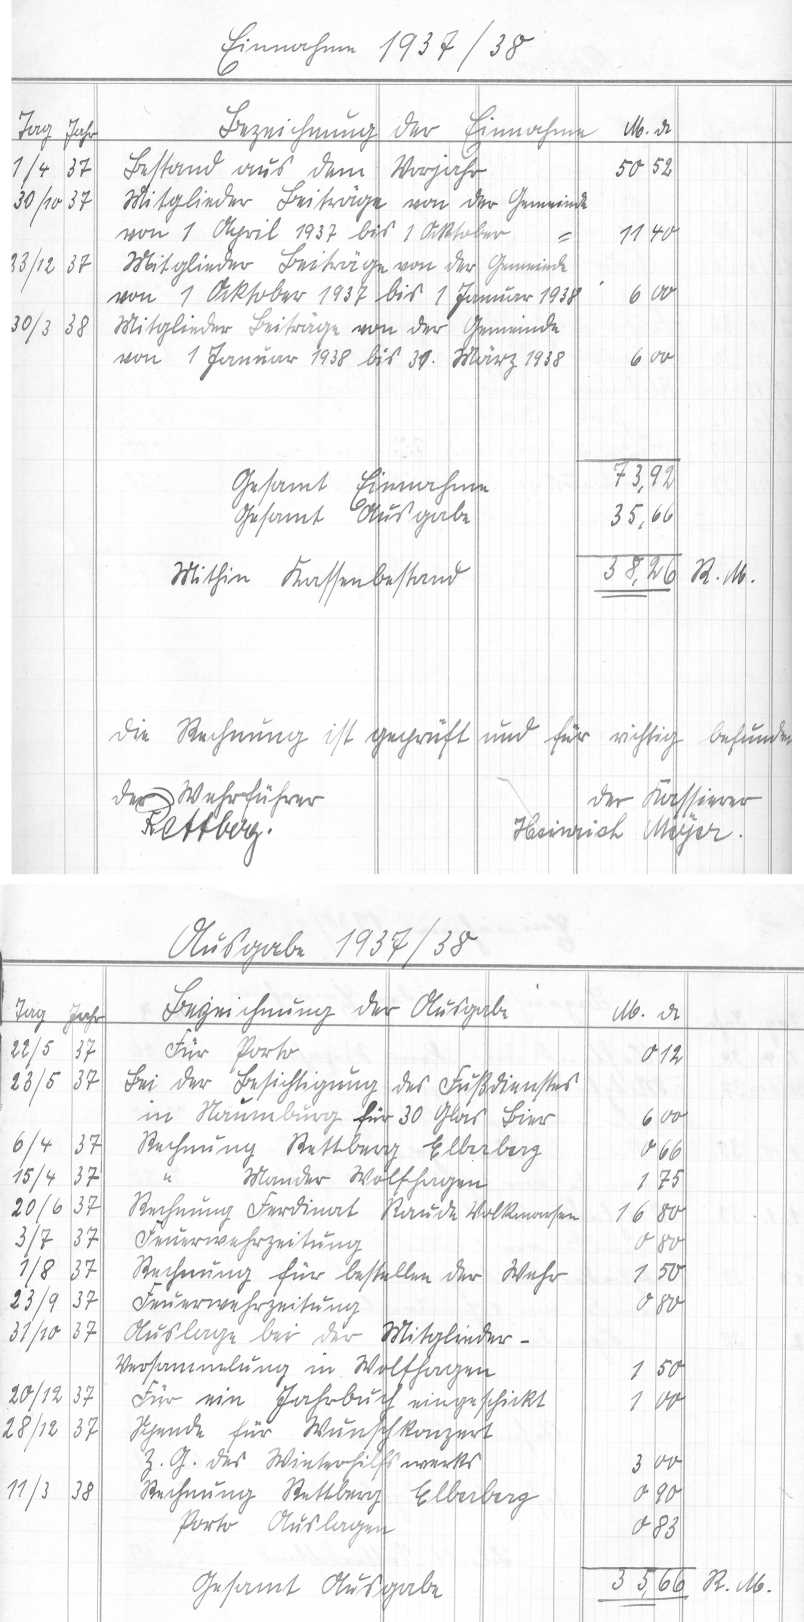 Einnahme 1937/38
Tag Jahr Bezeichnung der Einnahme M. d
1/4 37 Bestand aus dem Vorjahr 50 52
30/10 37 Mitglieder Beiträge von der Gemeinde
von 1 April 1937 bis 1 Ocktober = 11 40
23/12 37 Mitglieder Beiträge von der Gemeinde
von 1 Ocktober 1937 bis 1 Januar 1938 6 00
30/3 38 Mitglieder Beiträge von der Gemeinde
von 1 Januar 1938 bis 31. März 1938 6 00
Gesamt Einnahme 73,92
Gesamt Ausgabe 35,66
Mithin Kassenbestand 38,26 R. M.
die Rechnung ist geprüft und für richtig befunden
der Wehrführer der Kassierer
Rettberg. Heinrich Meÿer.
Ausgabe 1937/38
Tag Jahr Bezeichnung der Ausgabe M. d
22/5 37 Für Porto 0 12
23/5 37 Bei der Besichtigung des Fußdienstes
in Naumburg für 30 Glas Bier 6 00
6/4 37 Rechnung Rettberg Elberberg 0 66
15/4 37 " Mander Wolfhagen 1 75
20/6 37 Rechnung Ferdinat Raude Volkmarsen 16 80
3/7 37 Feuerwehrzeitung 0 80
1/8 37 Rechnung für bestellen der Wehr 1 50
23/9 37 Feuerwehrzeitung 0 80
31/10 37 Auslage bei der Mitglieder-
Versammlung in Wolfhagen 1 50
20/12 37 Für ein Jahrbuch eingeschickt 1 00
28/12 37 Spende für Wunschkonzert
Z. G. des Winterhilfswerks 3 00
11/3 38 Rechnung Rettberg Elberberg 0 90
Porto Auslagen 0 83
Gesamt Ausgabe 35,66 R. M.